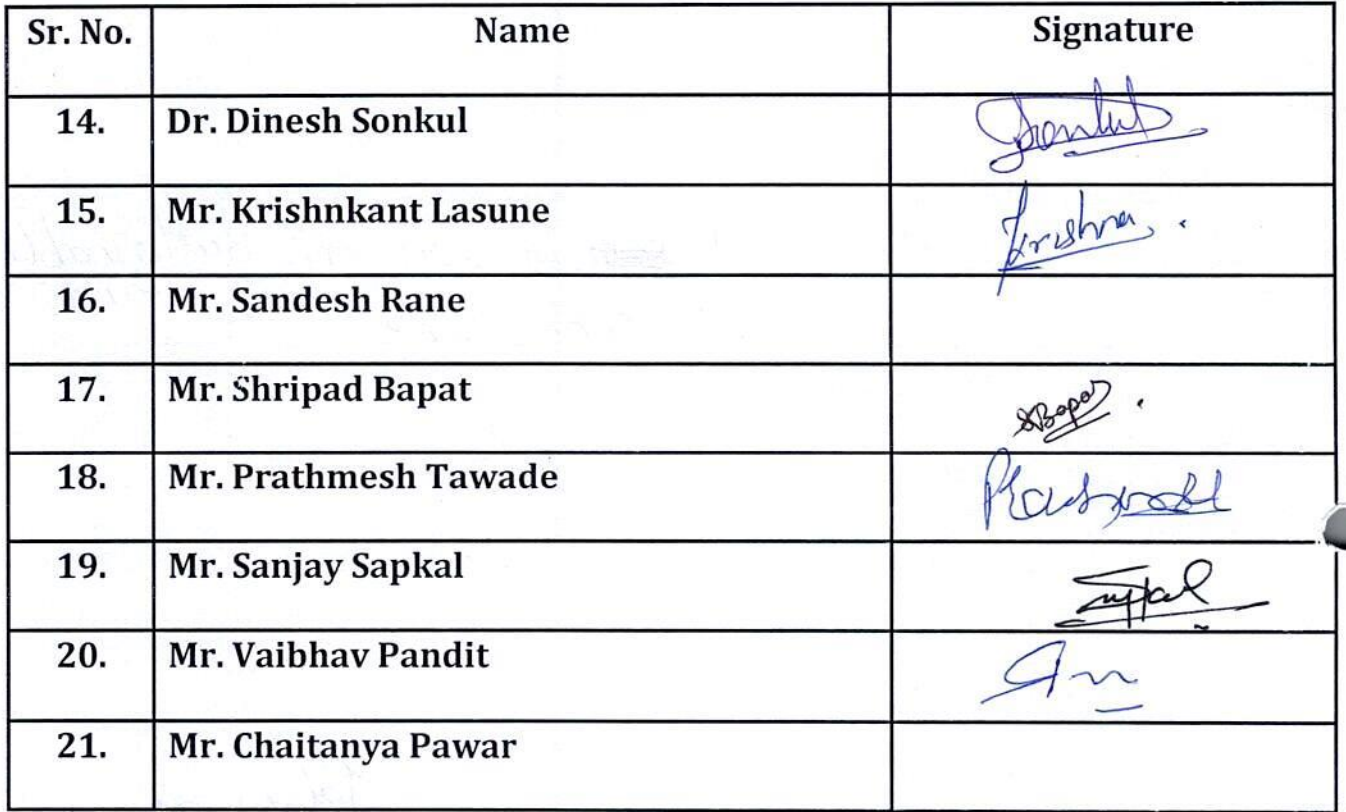 Sr. No. Name Signature
14. Dr. Dinesh Sonkul Sonkul
15. Mr. Krishnkant Lasune Krishna
16. Mr. Sandesh Rane
17. Mr. Shripad Bapat SBapat
18. Mr. Prathmesh Tawade
19. Mr. Sanjay Sapkal
20. Mr. Vaibhav Pandit
21. Mr. Chaitanya Pawar